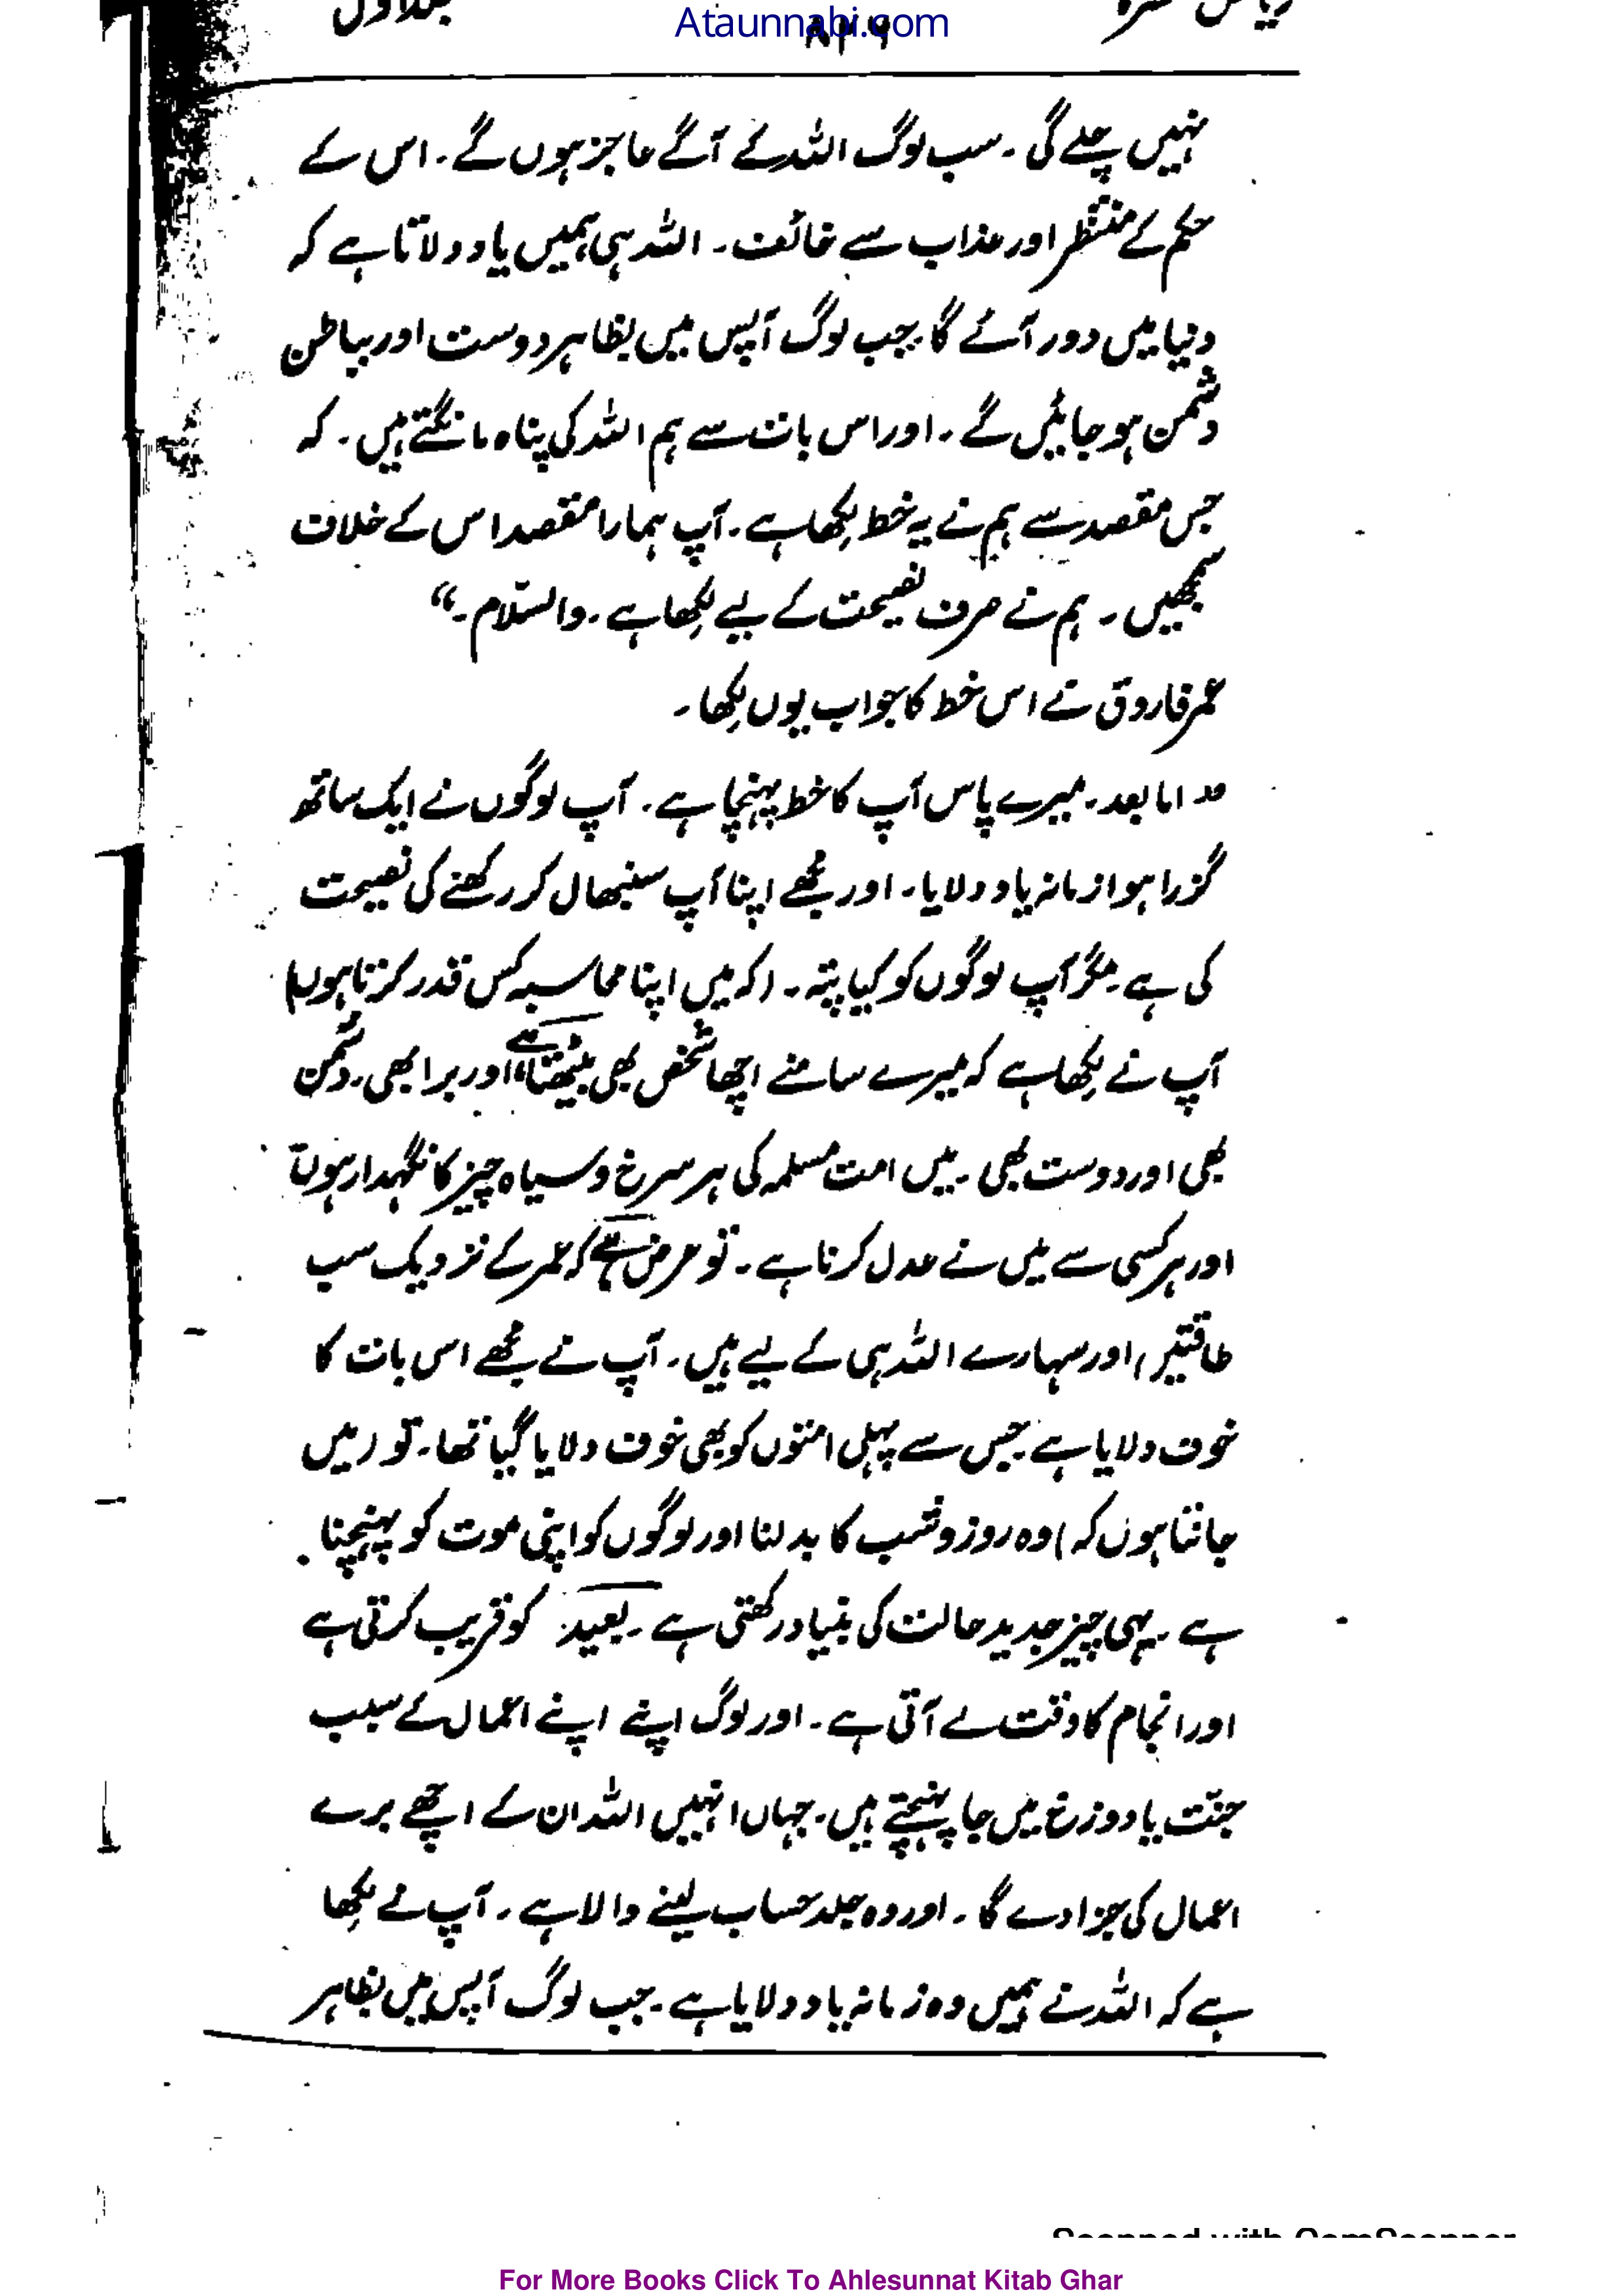 Ataunnabi.com
نہیں چلے گی ۔ سب لوگ اللہ کے آگے عاجز ہوں گے ۔ اس کے
حکم کے منتظر اور عذاب سے خائف ۔ اللہ ہی ہمیں یاد دلاتا ہے کہ
دنیا میں دور آئے گا جب لوگ آپس میں بظاہر دوست اور بباطن
دشمن ہو جائیں گے ۔ اور اس بات سے ہم اللہ کی پناہ مانگتے ہیں ۔ کہ
جس مقصد سے ہم نے یہ خط لکھا ہے ۔ آپ ہمارا مقصد اس کے خلاف
سمجھیں ۔ ہم نے صرف نصیحت کے لیے لکھا ہے ۔ والسّلام ۔“
عمر فاروق نے اس خط کا جواب یوں لکھا ۔
” اما بعد ۔ میرے پاس آپ کا خط پہنچا ہے ۔ آپ لوگوں نے ایک ساتھ
گزرا ہوا زمانہ یاد دلایا ۔ اور مجھے اپنا آپ سنبھال کر رکھنے کی نصیحت
کی ہے ۔ مگر آپ لوگوں کو کیا پتہ ۔ (کہ میں اپنا محاسبہ کس قدر کرتا ہوں)
آپ نے لکھا ہے کہ میرے سامنے اچھا شخص بھی بیٹھتا ہے اور برا بھی ۔ دشمن
بھی اور دوست بھی ۔ میں امت مسلمہ کی ہر سرخ و سیاہ چیز کا نگہدار ہوں
اور ہر کسی سے میں نے عدل کرنا ہے ۔ تو عرض ہے کہ عمر کے نزدیک سب
طاقتیں اور سہارے اللہ ہی کے لیے ہیں ۔ آپ نے مجھے اس بات کا
خوف دلایا ہے جس سے پہلی امتوں کو بھی خوف دلایا گیا تھا ۔ تو (میں
جانتا ہوں کہ) وہ روز و شب کا بدلنا اور لوگوں کو اپنی موت کو پہنچنا
ہے ۔ یہی چیز جدید حالت کی بنیاد رکھتی ہے ۔ بعید کو قریب کرتی ہے
اور انجام کا وقت لے آتی ہے ۔ اور لوگ اپنے اپنے اعمال کے سبب
جنّت یا دوزخ میں جا پہنچتے ہیں ۔ جہاں انہیں اللہ ان کے اچھے برے
اعمال کی جزا دے گا ۔ اور وہ جلد حساب لینے والا ہے ۔ آپ نے لکھا
ہے کہ اللہ نے ہمیں وہ زمانہ یاد دلایا ہے ۔ جب لوگ آپس میں بظاہر
Scanned with CamScanner
For More Books Click To Ahlesunnat Kitab Ghar